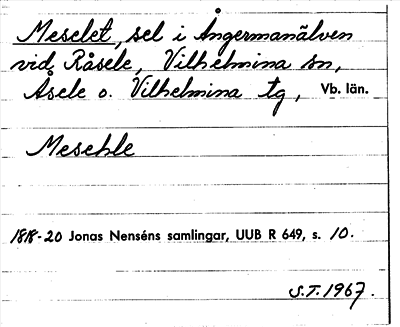 Meselet, sel i Ångermanälven
vid Råsele, Vilhelmina sn,
Åsele o. Vilhelmina tg, Vb. län.
Mesehle
1818-20 Jonas Nenséns samlingar, UUB R 649, s. 10.
S.T. 1967.